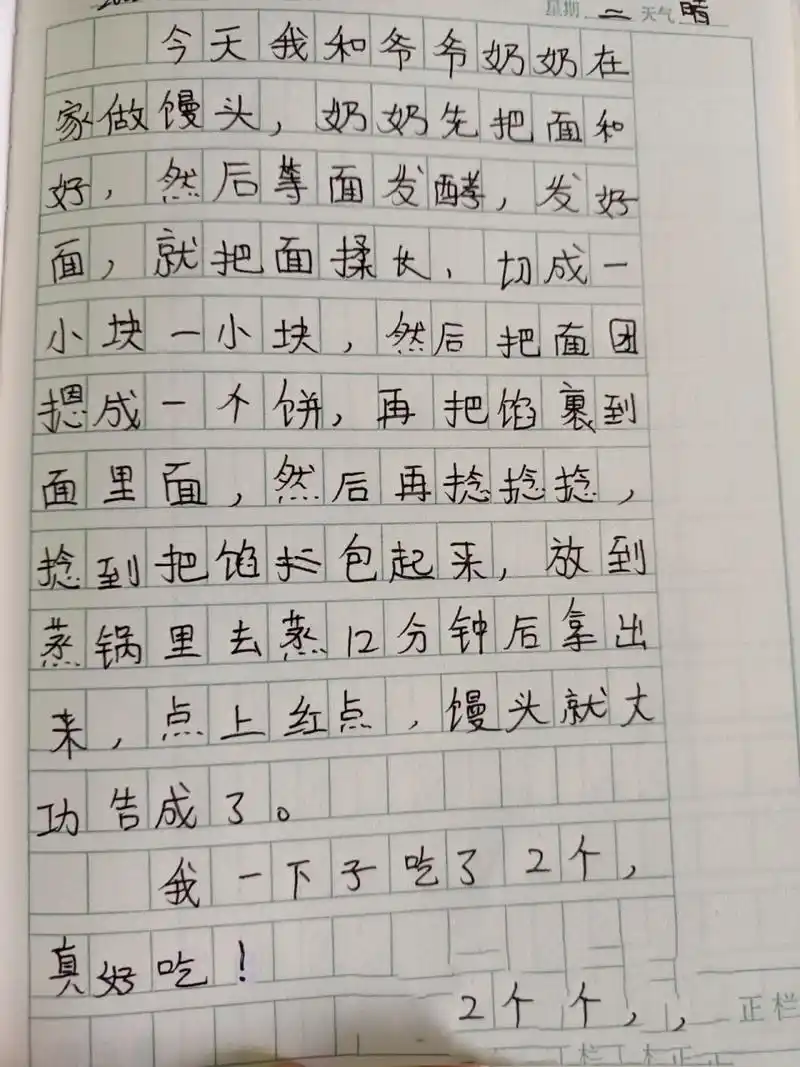 星期 二 天气 晴
今天我和爷爷奶奶在
家做馒头，奶奶先把面和
好，然后等面发酵，发好
面，就把面揉长，切成一
小块一小块，然后把面团
摁成一个饼，再把馅裹到
面里面，然后再捻捻捻，
捻到把馅拦包起来，放到
蒸锅里去蒸12分钟后拿出
来，点上红点，馒头就大
功告成了。
我一下子吃了2个，
真好吃！
2个个，， 正栏